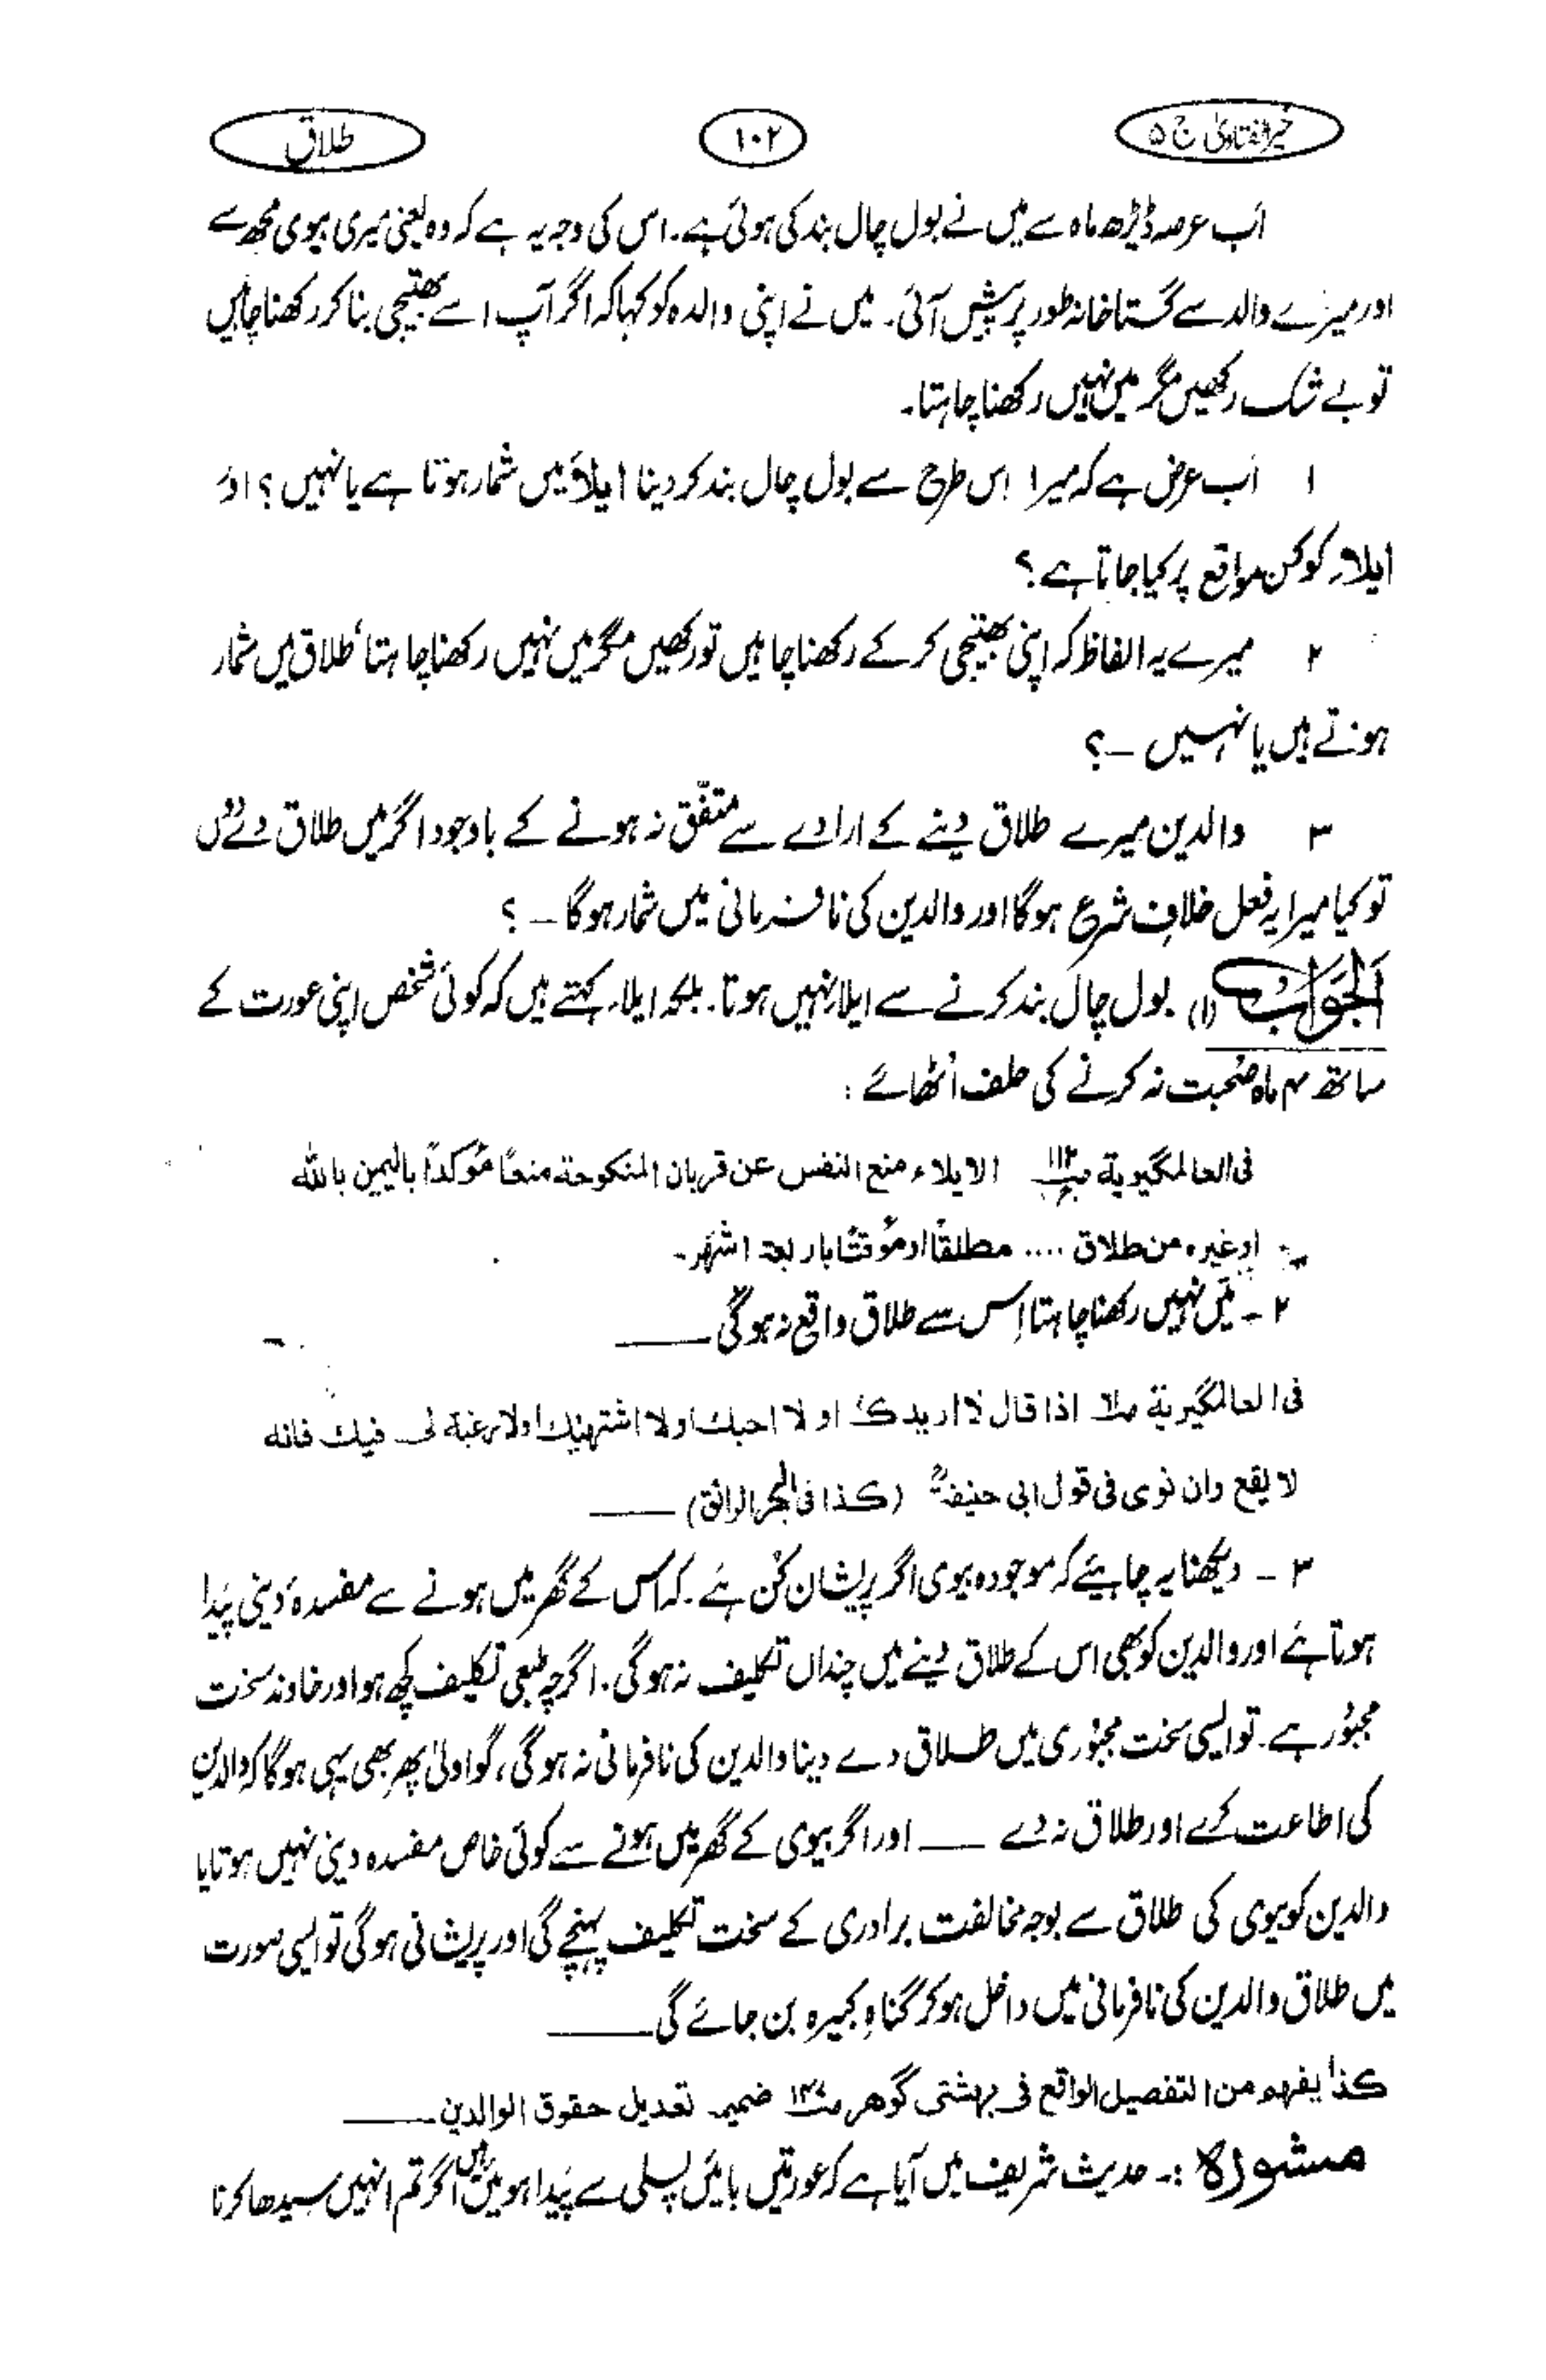 خیرالفتاویٰ ج ۵
۱۰۲
طلاق
اَب عرصہ ڈیڑھ ماہ سے میں نے بول چال بند کی ہوئی ہے۔ اس کی وجہ یہ ہے کہ وہ یعنی میری بیوی مجھ سے
اور میرے والد سے گستاخانہ طور پر پیش آئی۔ میں نے اپنی والدہ کو کہا کہ اگر آپ اسے بھتیجی بنا کر رکھنا چاہیں
تو بے شک رکھیں مگر میں نہیں رکھنا چاہتا۔
۱ اَب عرض ہے کہ میرا اس طرح سے بول چال بند کر دینا ایلاء میں شمار ہوتا ہے یا نہیں؟ اور
ایلاء کو کن مواقع پر کیا جاتا ہے؟
۲ میرے یہ الفاظ کہ اپنی بھتیجی کر کے رکھنا چاہیں تو رکھیں مگر میں نہیں رکھنا چاہتا، طلاق میں شمار
ہوتے ہیں یا نہیں ــ؟
۳ والدین میرے طلاق دینے کے ارادے سے متفق نہ ہونے کے باوجود اگر میں طلاق دے دُوں
تو کیا میرا یہ فعل خلافِ شرع ہوگا اور والدین کی نافرمانی میں شمار ہوگا ــ؟
اَلجَوَاب (۱) بول چال بند کرنے سے ایلاء نہیں ہوتا۔ بلکہ ایلاء کہتے ہیں کہ کوئی شخص اپنی عورت کے
ساتھ ۴ ماہ صُحبت نہ کرنے کی حلف اُٹھائے :
فی العالمگیریة الایلاء منع النفس عن قربان المنکوحة منعًا مُوکدًا بالیمین باللّٰہ
او غیرہ من طلاق .... مطلقًا او مُوقتًا باربعة اشہر۔
۲ ۔ مَیں نہیں رکھنا چاہتا اِس سے طلاق واقع نہ ہوگی ــــ
فی العالمگیریة اذا قال لا اریدک او لا احبک او لا اشتہیک او لا رغبة لی فیک فانه
لا یقع وان نوی فی قول ابی حنیفةؒ (کذا فی البحر الرائق) ــــ
۳ ۔ دیکھنا یہ چاہیئے کہ موجودہ بیوی اگر پریشان کُن ہے۔ کہ اس کے گھر میں ہونے سے مفسدہ دینی پَیدا
ہوتا ہے اور والدین کو بھی اس کے طلاق دینے میں چنداں تکلیف نہ ہوگی۔ اگرچہ طبعی تکلیف کچھ ہو اور خاوند سخت
مجبُور ہے۔ تو ایسی سخت مجبُوری میں طلاق دے دینا والدین کی نافرمانی نہ ہوگی، گو اولیٰ پھر بھی یہی ہوگا کہ والدین
کی اطاعت کرے اور طلاق نہ دے ــــ اور اگر بیوی کے گھر میں ہونے سے کوئی خاص مفسدہ دینی نہیں ہوتا یا
والدین کو بیوی کی طلاق سے بوجہ مخالفت برادری کے سخت تکلیف پہنچے گی اور پریشانی ہوگی تو ایسی صورت
میں طلاق والدین کی نافرمانی میں داخل ہو کر گناہِ کبیرہ بن جائے گی ــــ
کذا یفہم من التفصیل الواقع فی بہشتی گوھر ضمیمہ تعدیل حقوق الوالدین ــــ
مشورہ :۔ حدیث شریف میں آیا ہے کہ عورتیں بائیں پسلی سے پَیدا ہوئیں ہیں اگر تم انہیں سیدھا کرنا